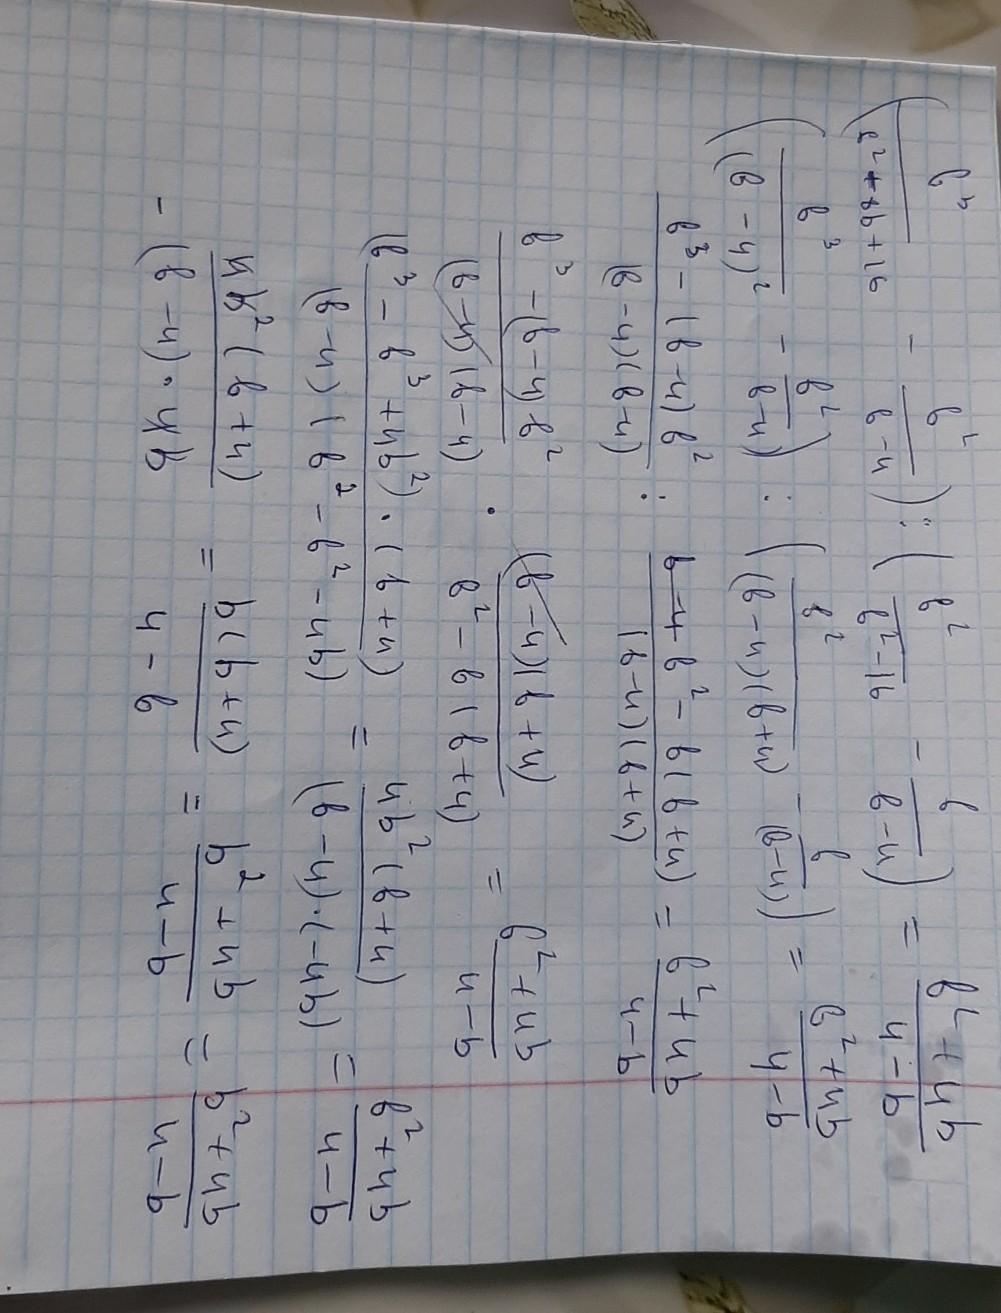 (b³/(b²-8b+16) - b²/(b-4)) : (b²/(b²-16) - b/(b-4)) = (b²+4b)/(4-b)
(b³/(b-4)² - b²/(b-4)) : (b²/((b-4)(b+4)) - b/(b-4)) = (b²+4b)/(4-b)
(b³-(b-4)b²)/((b-4)(b-4)) : (b²-b(b+4))/((b-4)(b+4)) = (b²+4b)/(4-b)
(b³-(b-4)b²)/((b-4)(b-4)) · ((b-4)(b+4))/(b²-b(b+4)) = (b²+4b)/(4-b)
((b³-b³+4b²)·(b+4))/((b-4)(b²-b²-4b)) = (4b²(b+4))/((b-4)·(-4b)) = (b²+4b)/(4-b)
- (4b²(b+4))/((b-4)·4b) = (b(b+4))/(4-b) = (b²+4b)/(4-b) = (b²+4b)/(4-b)